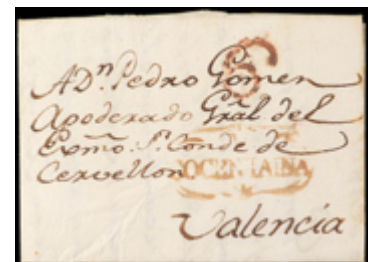 6
A Dn. Pedro Gomen
Apoderado Gral del
Exmo. Sr. Conde de
Cervellon
COCENTAINA
Valencia